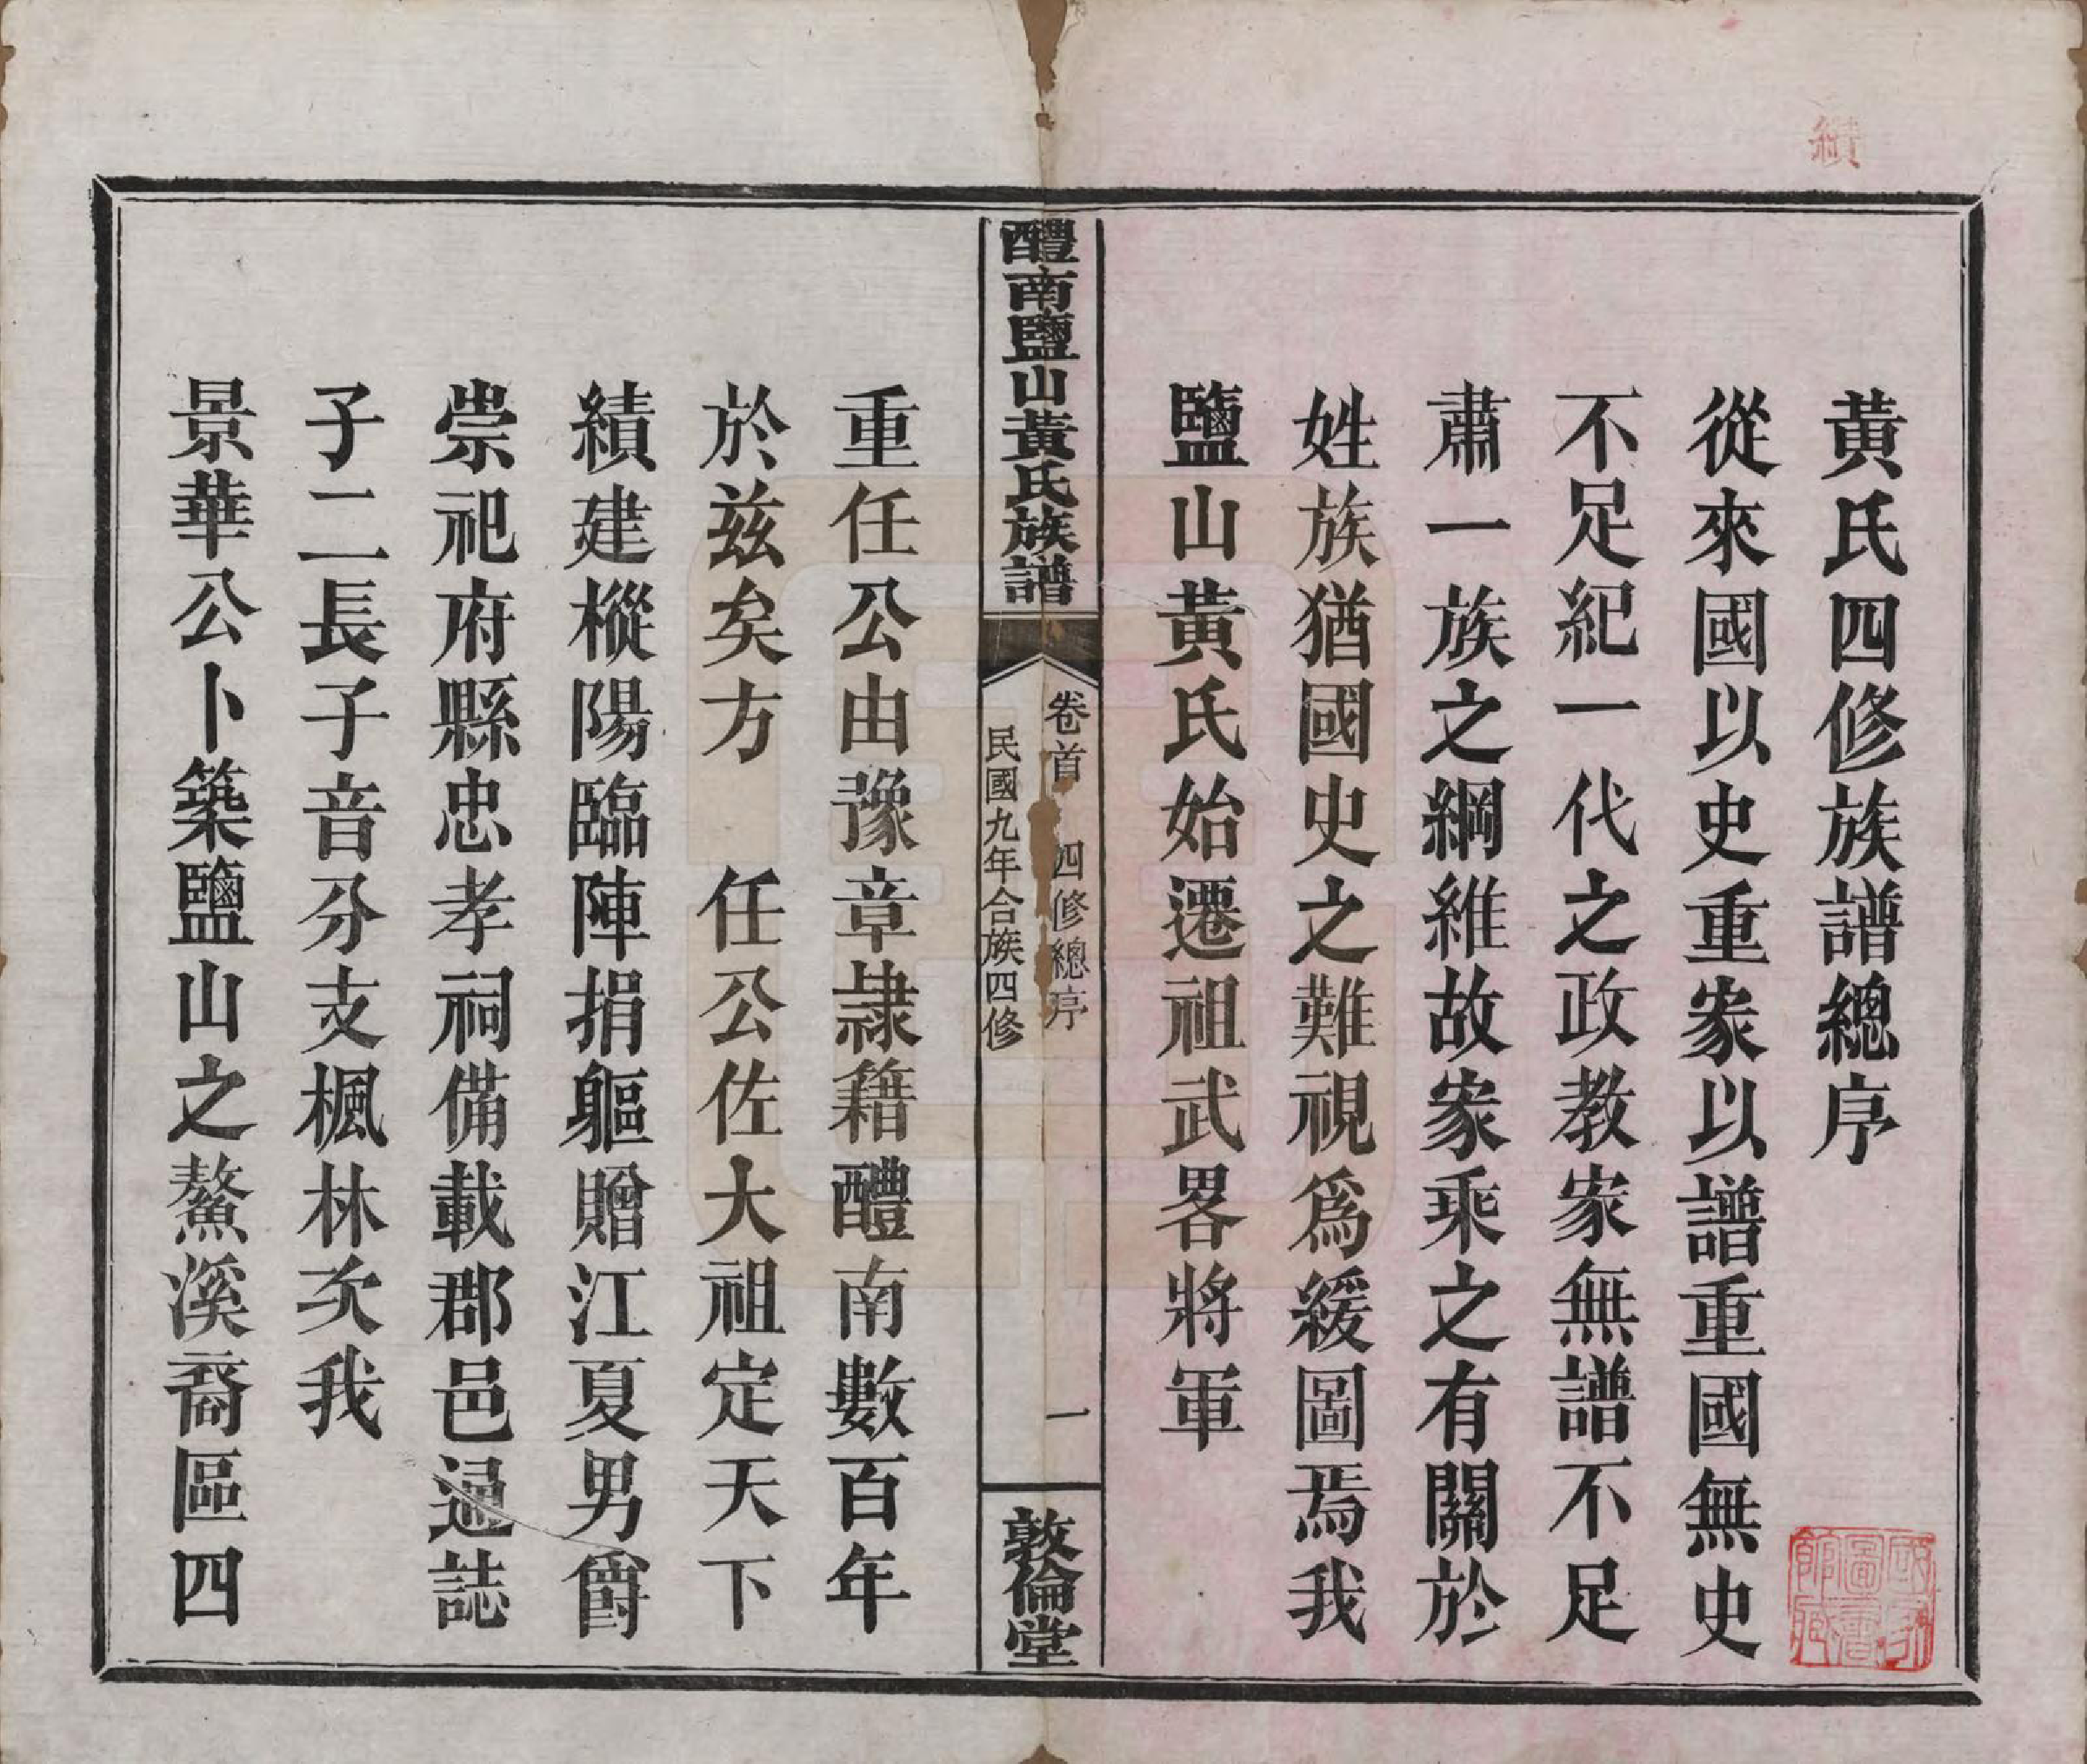 續
黃氏四修族譜總序
從來國以史重家以譜重國無史
不足紀一代之政教家無譜不足
肅一族之綱維故家乘之有關於
姓族猶國史之難視爲緩圖焉我
鹽山黃氏始遷祖武畧將軍
醴南鹽山黃氏族譜
卷首 四修總序
一
民國九年合族四修
敦倫堂
重任公由豫章隷籍醴南數百年
於兹矣方 任公佐大祖定天下
績建樅陽臨陣捐軀贈江夏男爵
崇祀府縣忠孝祠備載郡邑通誌
子二長子音分支楓林次我
景華公卜築鹽山之鰲溪裔區四